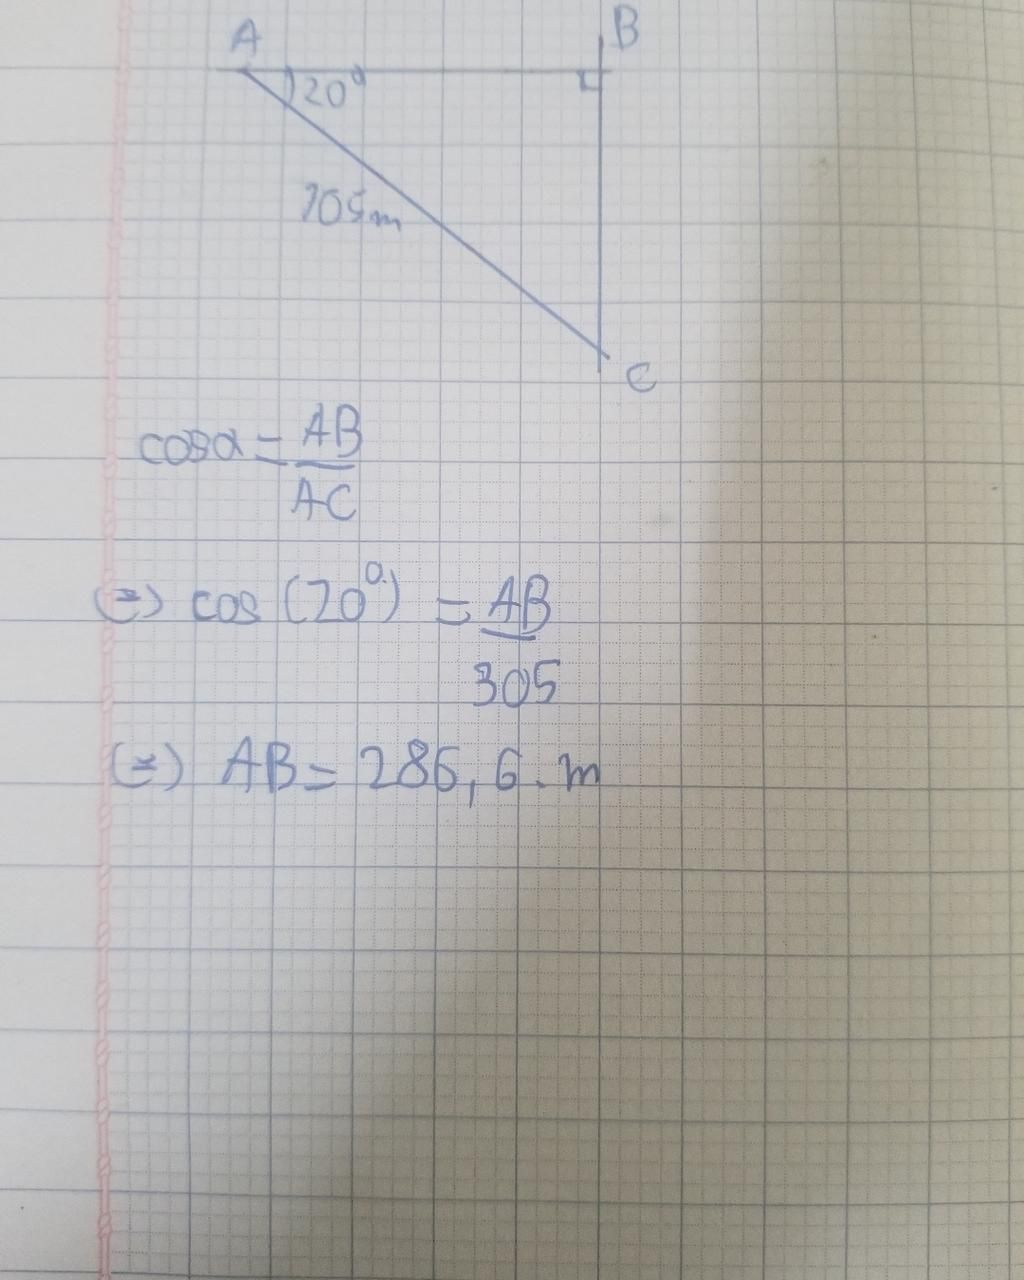 A
B
20°
305m
C
cosα = AB
AC
(=) cos (20°) = AB
305
(=) AB = 286,6. m